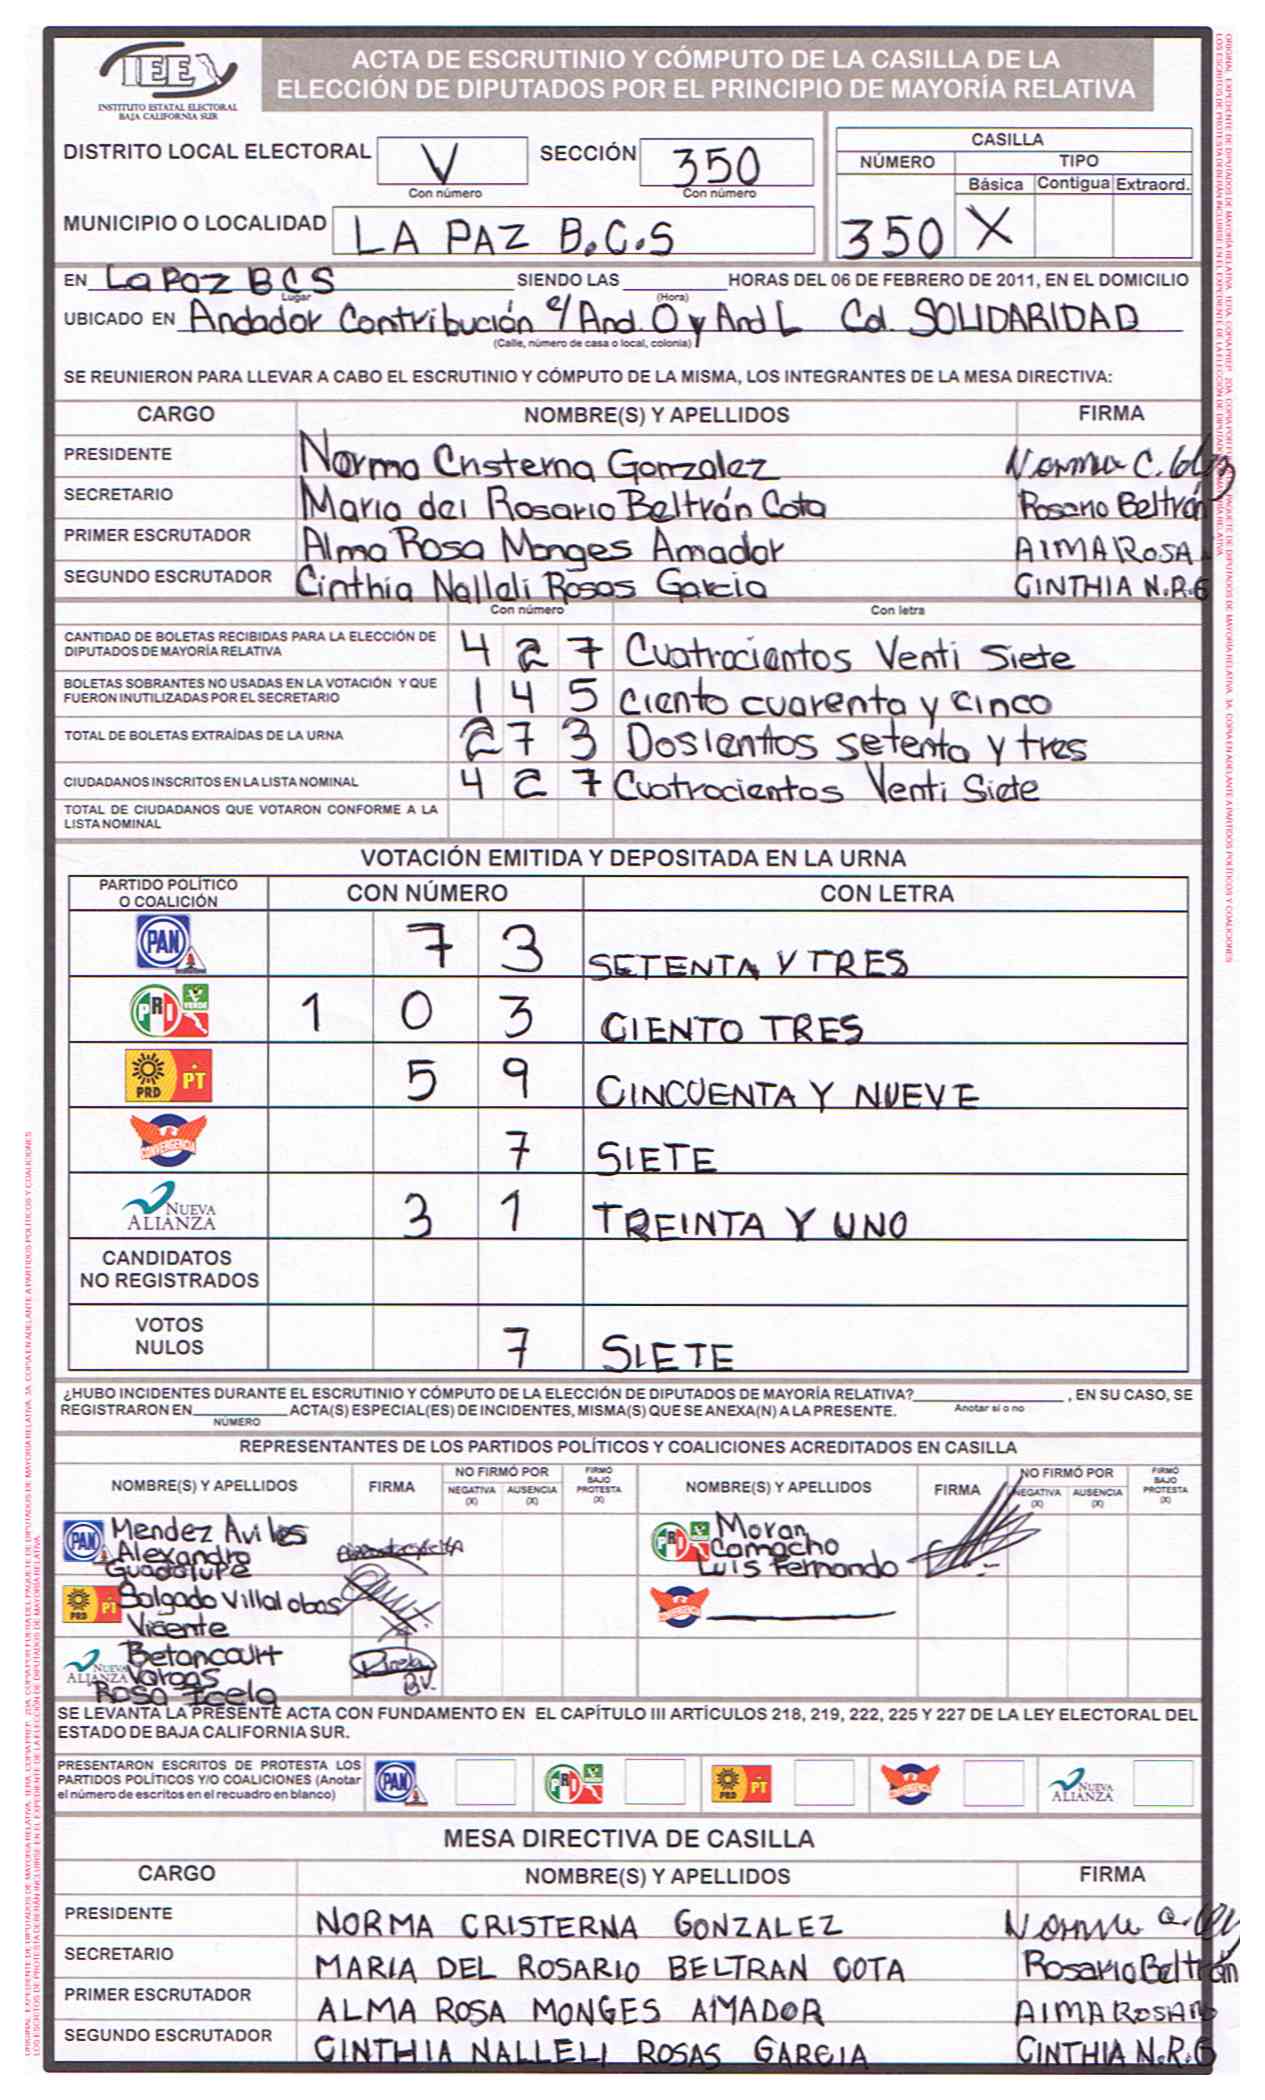 IEE
INSTITUTO ESTATAL ELECTORAL
BAJA CALIFORNIA SUR
ACTA DE ESCRUTINIO Y CÓMPUTO DE LA CASILLA DE LA
ELECCIÓN DE DIPUTADOS POR EL PRINCIPIO DE MAYORÍA RELATIVA
DISTRITO LOCAL ELECTORAL V SECCIÓN 350
Con número Con número
CASILLA
NÚMERO TIPO
Básica Contigua Extraord.
350 X
MUNICIPIO O LOCALIDAD LA PAZ B.C.S
EN La Paz BCS SIENDO LAS HORAS DEL 06 DE FEBRERO DE 2011, EN EL DOMICILIO
Lugar (Hora)
UBICADO EN Andador Contribución e/ And. O y And L Col. SOLIDARIDAD
(Calle, número de casa o local, colonia)
SE REUNIERON PARA LLEVAR A CABO EL ESCRUTINIO Y CÓMPUTO DE LA MISMA, LOS INTEGRANTES DE LA MESA DIRECTIVA:
CARGO NOMBRE(S) Y APELLIDOS FIRMA
PRESIDENTE Norma Cristerna Gonzalez Norma C.
SECRETARIO Maria del Rosario Beltrán Cota Rosario Beltrán
PRIMER ESCRUTADOR Alma Rosa Monges Amador AlMA ROSA
SEGUNDO ESCRUTADOR Cinthia Nalleli Rosas Garcia CINTHIA N.R.G
Con número Con letra
CANTIDAD DE BOLETAS RECIBIDAS PARA LA ELECCIÓN DE
DIPUTADOS DE MAYORÍA RELATIVA 4 2 7 Cuatrocientos Venti Siete
BOLETAS SOBRANTES NO USADAS EN LA VOTACIÓN Y QUE
FUERON INUTILIZADAS POR EL SECRETARIO 1 4 5 ciento cuarenta y cinco
TOTAL DE BOLETAS EXTRAÍDAS DE LA URNA 2 7 3 Dosientos setenta y tres
CIUDADANOS INSCRITOS EN LA LISTA NOMINAL 4 2 7 Cuatrocientos Venti Siete
TOTAL DE CIUDADANOS QUE VOTARON CONFORME A LA
LISTA NOMINAL
VOTACIÓN EMITIDA Y DEPOSITADA EN LA URNA
PARTIDO POLÍTICO
O COALICIÓN CON NÚMERO CON LETRA
PAN 7 3 SETENTA Y TRES
PRI VERDE 1 0 3 CIENTO TRES
PRD PT 5 9 CINCUENTA Y NUEVE
CONVERGENCIA 7 SIETE
NUEVA ALIANZA 3 1 TREINTA Y UNO
CANDIDATOS
NO REGISTRADOS
VOTOS
NULOS 7 SIETE
¿HUBO INCIDENTES DURANTE EL ESCRUTINIO Y CÓMPUTO DE LA ELECCIÓN DE DIPUTADOS DE MAYORÍA RELATIVA? , EN SU CASO, SE
Anotar si o no
REGISTRARON EN ACTA(S) ESPECIAL(ES) DE INCIDENTES, MISMA(S) QUE SE ANEXA(N) A LA PRESENTE.
NÚMERO
REPRESENTANTES DE LOS PARTIDOS POLÍTICOS Y COALICIONES ACREDITADOS EN CASILLA
NOMBRE(S) Y APELLIDOS FIRMA NO FIRMÓ POR NEGATIVA (X) AUSENCIA (X) FIRMÓ BAJO PROTESTA (X) NOMBRE(S) Y APELLIDOS FIRMA NO FIRMÓ POR NEGATIVA (X) AUSENCIA (X) FIRMÓ BAJO PROTESTA (X)
PAN Mendez Aviles
Alexandra
Guadalupe
PRI Moran
Camacho
Luis Fernando
PRD PT Salgado Villalobos
Vicente
CONVERGENCIA
NUEVA ALIANZA Betancourt
Vargas
Rosa Icela
B.V.
SE LEVANTA LA PRESENTE ACTA CON FUNDAMENTO EN EL CAPÍTULO III ARTÍCULOS 218, 219, 222, 225 Y 227 DE LA LEY ELECTORAL DEL
ESTADO DE BAJA CALIFORNIA SUR.
PRESENTARON ESCRITOS DE PROTESTA LOS
PARTIDOS POLÍTICOS Y/O COALICIONES (Anotar
el número de escritos en el recuadro en blanco)
PAN PRI PRD PT CONVERGENCIA NUEVA ALIANZA
MESA DIRECTIVA DE CASILLA
CARGO NOMBRE(S) Y APELLIDOS FIRMA
PRESIDENTE NORMA CRISTERNA GONZALEZ Norma
SECRETARIO MARIA DEL ROSARIO BELTRAN COTA Rosario Beltrán
PRIMER ESCRUTADOR ALMA ROSA MONGES AMADOR AlMA ROSA
SEGUNDO ESCRUTADOR CINTHIA NALLELI ROSAS GARCIA CINTHIA N.R.G